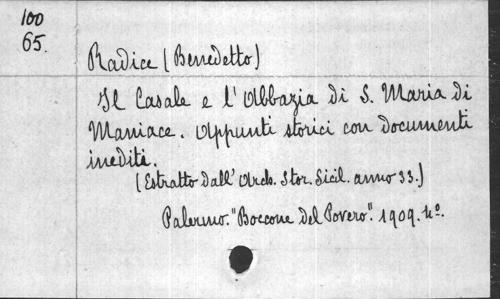 100
65.
Radice (Benedetto)
Il Casale e l'Abbazia di S. Maria di
Maniace. Appunti storici con documenti
inediti.
(Estratto dall'Arch. Stor. Sicil. anno 33.)
Palermo. "Boccone del Povero". 1909. 4º.